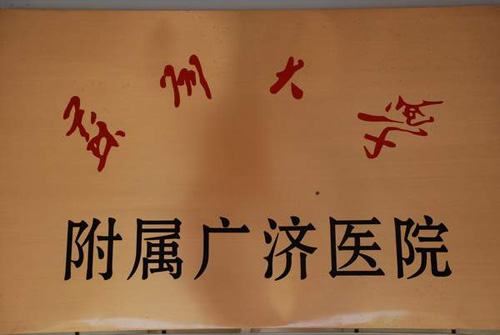 苏州大学
附属广济医院